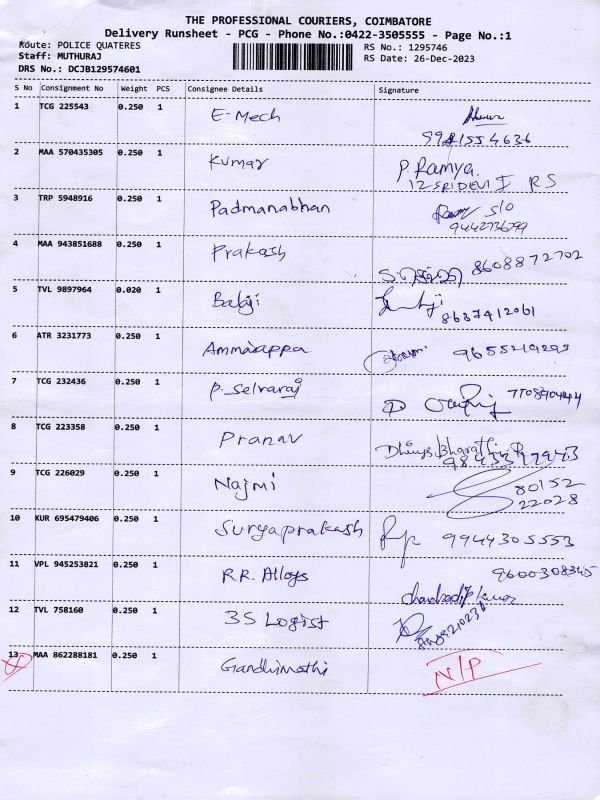 THE PROFESSIONAL COURIERS, COIMBATORE
Delivery Runsheet - PCG - Phone No.:0422-3505555 - Page No.:1
Route: POLICE QUATERES RS No.: 1295746
Staff: MUTHURAJ RS Date: 26-Dec-2023
DRS No.: DCJB129574601
S No Consignment No Weight PCS Consignee Details Signature
1 TCG 225543 0.250 1 E-Mech
2 MAA 570435305 0.250 1 Kumar P. Ramya.
12 SRI DEVI I RS
3 TRP 5948916 0.250 1 Padmanabhan S/O
4 MAA 943851688 0.250 1 Prakash 8608872702
5 TVL 9897964 0.020 1 Balaji
8637412061
6 ATR 3231773 0.250 1 Ammaiappa
7 TCG 232436 0.250 1 P-Selvaraj
8 TCG 223358 0.250 1 Pranav
9 TCG 226029 0.250 1 Najmi 80152
22028
10 KUR 695479406 0.250 1 Suryaprakash 9944305553
11 VPL 945253821 0.250 1 R.R. Alloys 9600308345
12 TVL 758160 0.250 1 3S Logist
13 MAA 862288181 0.250 1 Gandhimathi N/P